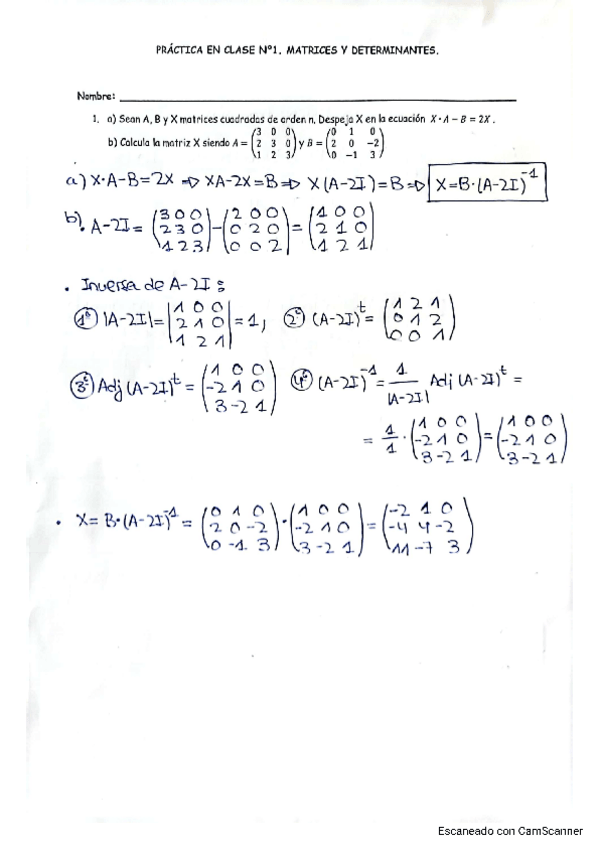 PRÁCTICA EN CLASE Nº1. MATRICES Y DETERMINANTES.
Nombre:
1. a) Sean A, B y X matrices cuadradas de orden n. Despeja X en la ecuación X·A – B = 2X.
b) Calcula la matriz X siendo A = (3 0 0; 2 3 0; 1 2 3) y B = (0 1 0; 2 0 -2; 0 -1 3)
a) X·A-B=2X => XA-2X=B => X(A-2I)=B => X=B·(A-2I)^-1
b) A-2I = (3 0 0; 2 3 0; 1 2 3) - (2 0 0; 0 2 0; 0 0 2) = (1 0 0; 2 1 0; 1 2 1)
• Inversa de A-2I:
1º |A-2I| = |1 0 0; 2 1 0; 1 2 1| = 1, 2º (A-2I)^t = (1 2 1; 0 1 2; 0 0 1)
3º Adj (A-2I)^t = (1 0 0; -2 1 0; 3 -2 1) 4º (A-2I)^-1 = 1/|A-2I| Adj (A-2I)^t =
= 1/1 · (1 0 0; -2 1 0; 3 -2 1) = (1 0 0; -2 1 0; 3 -2 1)
• X = B·(A-2I)^-1 = (0 1 0; 2 0 -2; 0 -1 3) · (1 0 0; -2 1 0; 3 -2 1) = (-2 1 0; -4 4 -2; 11 -7 3)
Escaneado con CamScanner